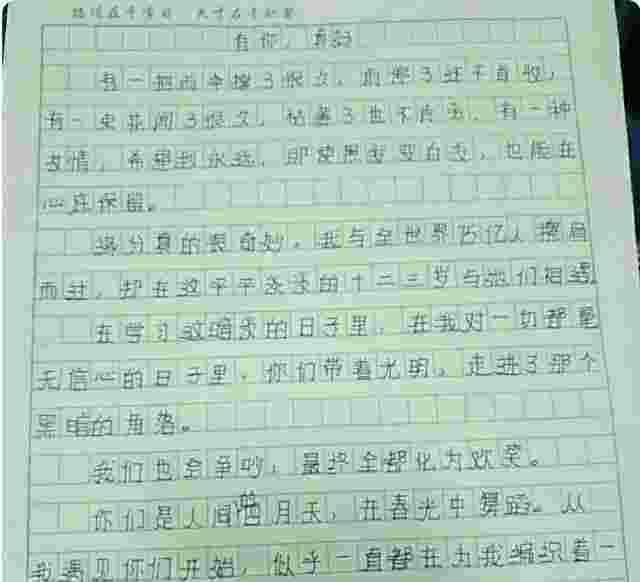 有你,真好
有一把雨伞撑了很久,雨停了还不肯收,
有一束花闻了很久,枯萎了也不肯丢,有一种
友情,希望到永远,即使黑发变白发,也能在
心底保留。
缘分真的很奇妙,我与全世界75亿人擦肩
而过,却在这平平淡淡的十二三岁与她们相遇。
在学习这暗淡的日子里,在我对一切都毫
无信心的日子里,你们带着光明,走进了那个
黑暗的角落。
我们也会争吵,最终全都化为欢笑。
你们是人间的四月天,在春光中舞蹈。从
我遇见你们开始,似乎一直都在为我编织着一